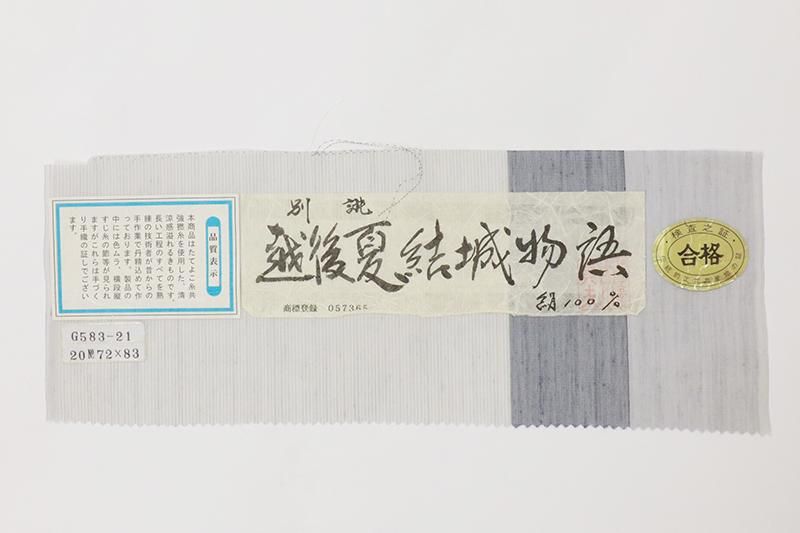 品質表示
本商品はたてよこ糸共
強撚糸を使用した、清
涼感溢れるきものです。
長い工程のすべてを熟
練の技術者が昔からの
手作業で丹精込めて作
っております。製品の
中には色ムラ、横段縦
すじ糸の節等が見られ
ますがこれらは手づく
り手織の証しでござい
ます。
G583-21
20 72×83
別誂
越後夏結城物語
商標登録 057365
絹100%
検査之証
合格